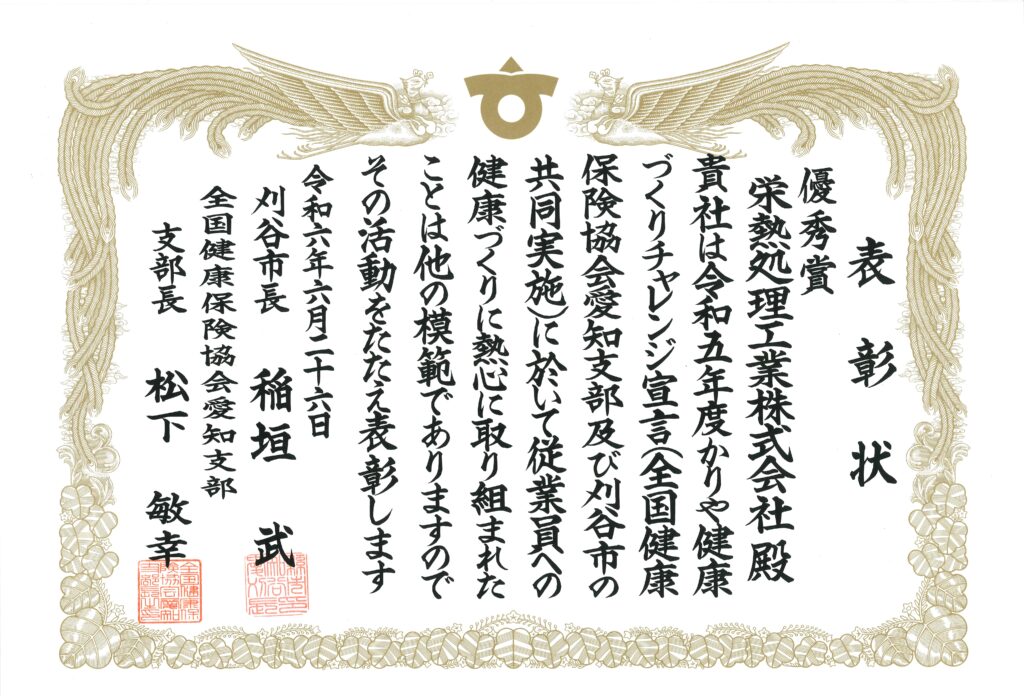 表彰状
優秀賞
栄熱処理工業株式会社殿
貴社は令和五年度かりや健康
づくりチャレンジ宣言(全国健康
保険協会愛知支部及び刈谷市の
共同実施)に於いて従業員への
健康づくりに熱心に取り組まれた
ことは他の模範でありますので
その活動をたたえ表彰します
令和六年六月二十六日
刈谷市長 稲垣 武
全国健康保険協会愛知支部
支部長 松下 敏幸